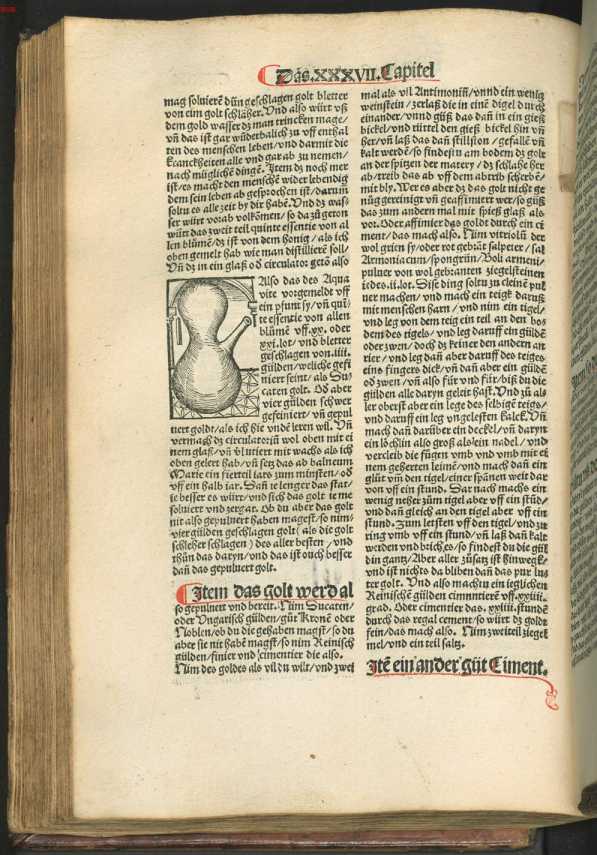 Das.XXXVII.Capitel
mag soluierē dün geschlagen golt bletter
von eim golt schläher. Vnd also würt vß
dem gold wasser dz man trincken mage/
vn̄ das ist gar wūderbalich zu vff enthal
ten des menschen leben/vnd darmit die
kranckheiten alle vnd gar ab zu nemen/
nach müglichē dingē. Itē dz noch mer
ist/es macht den menschē wider lebendig
dem sein leben ab gesprochen ist/darum
soltu es alle zeit by dir habē. Vnd dz was/
ser würt vorab volkōmen/so da zu geton
würt das zweit teil quinte essentie von al
len blümē/dz ist von dem honig/als ich
oben gemelt hab wie man distillierē soll/
Vn̄ dz in ein glaß od circulator getō also
Also das des Aqua
vite vorgemeldt vff
ein pfunt sy/vn̄ qui
te essentie von allen
blümē vff.xx. oder
xxi.lot/vnd bletter
geschlagen von.iiii.
gülden/weliche gefi
niert seint/als Du/
caten golt. Od aber
vier gülden schwer
gefiniert/vn̄ gepul
uert goldt/als ich hie vndē leren wil. Vn̄
vermach dz circulatoriū wol oben mit ei
nem glaß/vn̄ v̄lutiert mit wachs als ich
oben gelert hab/vn̄ setz das ab balneum
Marie ein fierteil iars zum minsten/od
vff ein halb iar. Dan̄ ie lenger das stat/
ie besser es würt/vnd sich das golt ie me
soluiert vnd zergat. Ob du aber das golt
nit also gepuluert haben magest/so nim/
vier gülden geschlagen golt (als die golt
schleher schlagen) des aller besten/vnd
thün das daryn/vnd das ist ouch besser
dan̄ das gepuluert golt.
Item das golt werd al
so gepuluert vnd bereit. Nüm Ducaten/
oder Vngarisch gülden/güt Kronē oder
Noblen/ob du die gehaben magst/so du
aber sie nit habē magst/so nim Reinisch
gülden/finier vnd cimentier die also.
Nüm des goldes als vil du wilt/vnd zwei
mal als vil Antimoniū/vnnd ein wenig
weinstein/zerlaß die in einē digel durch
einander/vnnd güß das dan̄ in ein gieß
bickel/vnd rüttel den gieß bickel hin vn̄
her/vn̄ laß das dan̄ stillston/gefalle̅ vn̄
kalt werdē/so findestu am bodem dz golt
an der spitzen der matery/dz schlahe her
ab/treib das ab vff dem abtrib scherbē/
mit bly. Wer es aber dz das golt nicht ge
nūg gereinigt vn̄ geaffiniert wer/so güß
das zum andern mal mit spieß glaß als
vor. Oder affinier das goldt durch ein ci
ment/das mach also. Nüm vitriolū der
wol grien sy/oder rot gebrāt salpeter/sal
Armoniacum/spongrün/Boli armeni/
puluer von wol gebranten ziegelsteinen
iedes.ii.lot. Dise ding soltu zu cleinē pul
uer machen/vnd mach ein teigk daruß
mit menschen harn/vnd nim ein tigel/
vnd leg von dem teig ein teil an den bo/
dem des tigels/vnd leg daruff ein güldē
oder zwen/doch dz keiner den andern an
rier/vnd leg dan̄ aber daruff des teiges
eins fingers dick/vn̄ dan̄ aber ein güldē
od zwen/vn̄ also für vnd für/biß du die
gülden alle daryn geleit hast. Vnd zü al/
ler oberst aber ein lege des selbigē teigs/
vnd daruff ein leg vngelesten kalck. Vn̄
mach dan̄ darüber ein deckel/vn̄ daryn
ein löchlin also groß als ein nadel/vnd
verkleib die fügen vmb vnd vmb mit ei
nem geherten leimē/vnd mach dan̄ ein
glüt vm̄ den tigel/einer spānen weit dar
von vff ein stund. Dar nach mach es ein
wenig neher zūm tigel aber vff ein stūd/
vnd dan̄ gleich an den tigel aber vff ein
stund. Zum letsten vff den tigel/vnd zu
ring vmb vff ein stund/vn̄ laß dan̄ kalt
werden vnd brich es/so findest du die gül
din gantz/Aber aller zūsatz ist hinwegk/
vnd ist nichts da bliben dan̄ das pur lu
ter golt. Vnd also machtu ein ieglichen
Reinischē gülden cimentierē vff.xxiiii.
grad. Oder cimentier das.xxiiii.stundē
durch das regal cement/so würt dz goldt
fein/das mach also. Nüm zweiteil ziegel
mel/vnd ein teil saltz.
Itē ein ander güt Ciment.